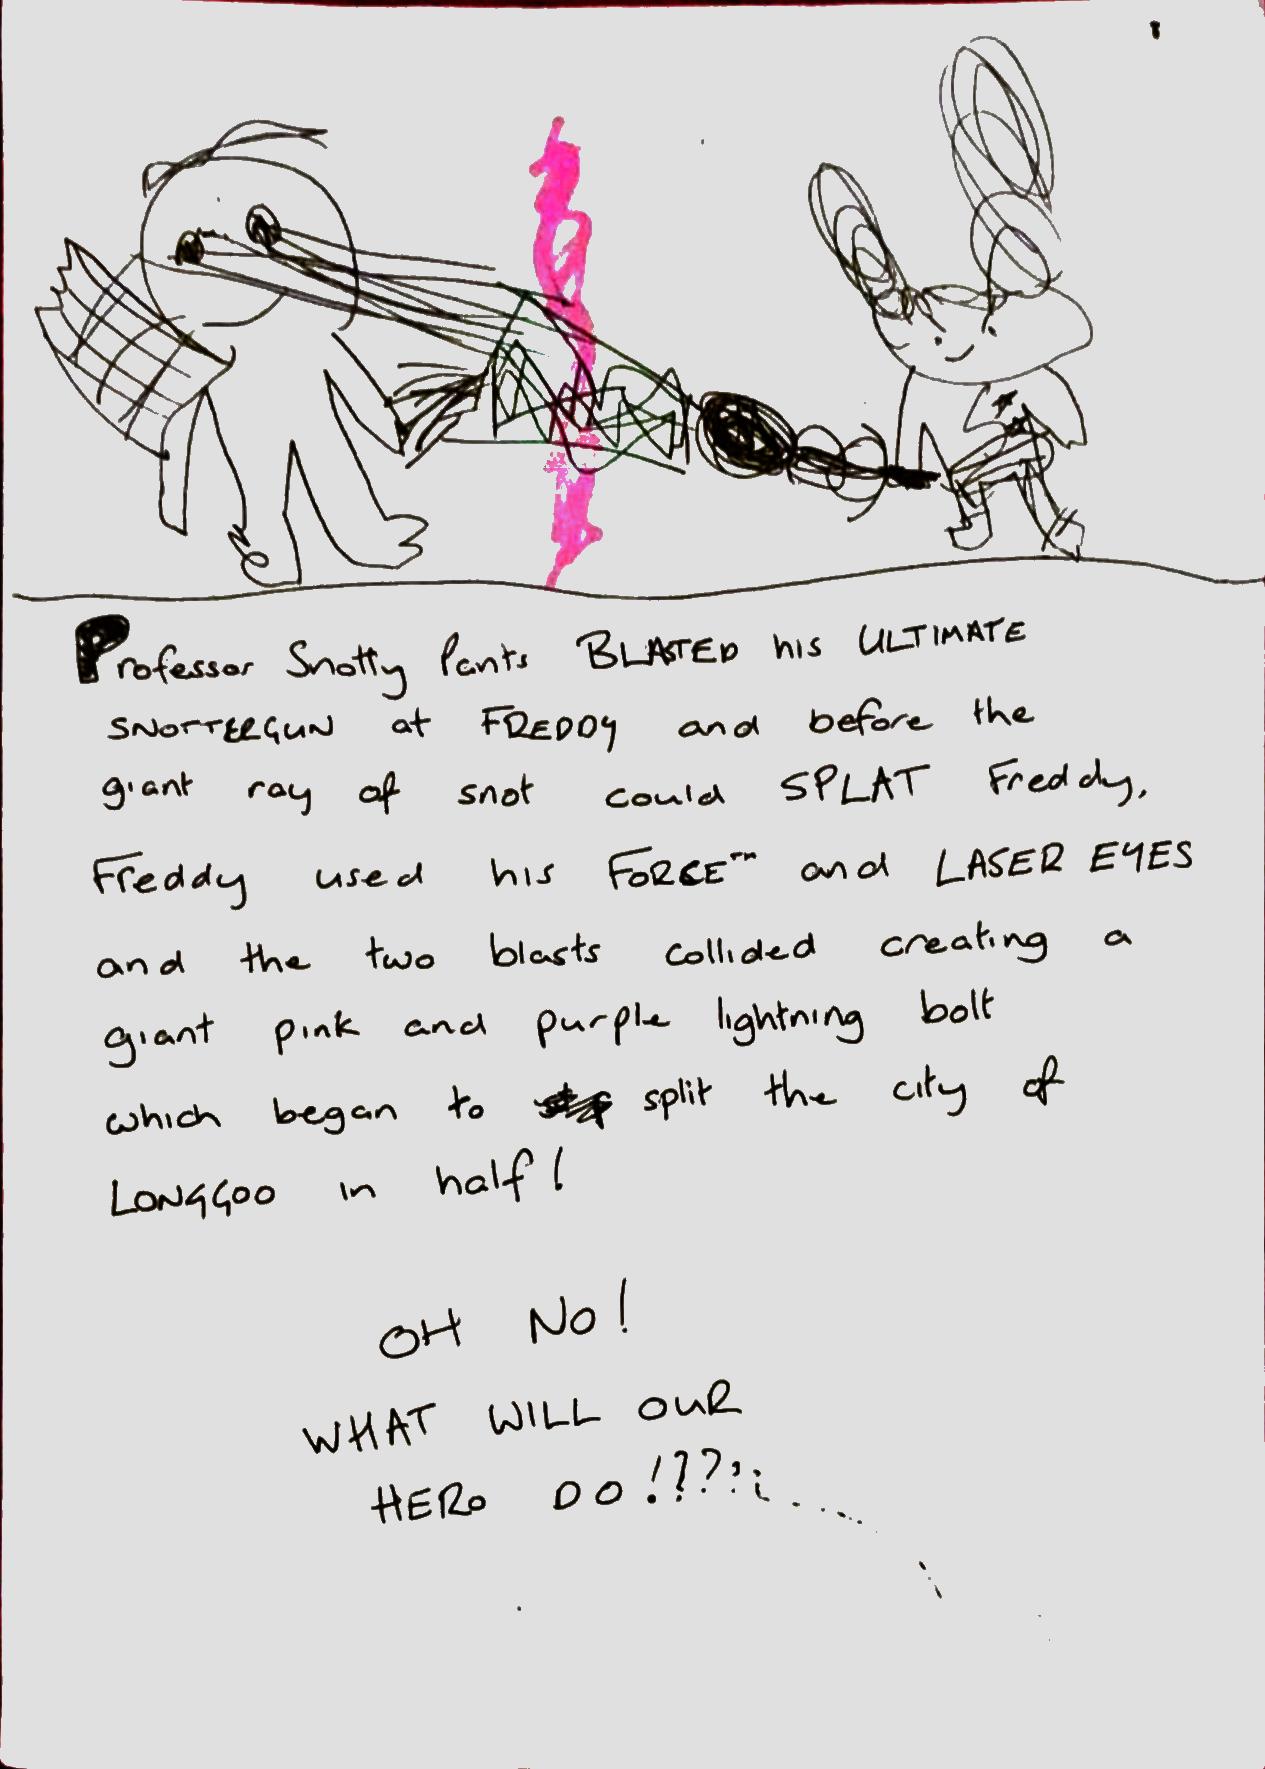 Professor Snotty Pants BLASTED his ULTIMATE
SNOTTERGUN at FREDDY and before the
giant ray of snot could SPLAT Freddy,
Freddy used his FORCE™ and LASER EYES
and the two blasts collided creating a
giant pink and purple lightning bolt
which began to split the city of
LONGGOO in half!
OH NO!
WHAT WILL OUR
HERO DO!???